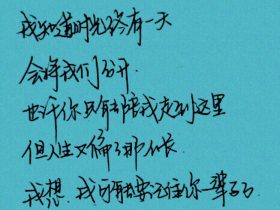 我知道时光终有一天
会将我们分开
也许你只能陪我走到这里
但人生又偏偏那么长
我想,我可能要记住你一辈子了